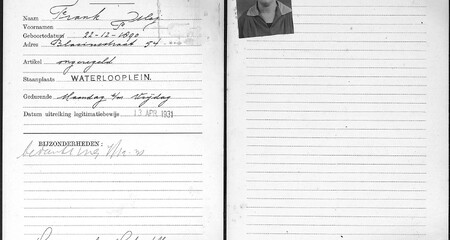 Naam Frank
Voornamen
Geboortedatum 22-12-1890
Adres Blasiusstraat 54
Artikel ongeregeld
Staanplaats WATERLOOPLEIN.
Gedurende Maandag t/m Vrijdag
Datum uitreiking legitimatiebewijs 13 APR. 1931
BIJZONDERHEDEN: